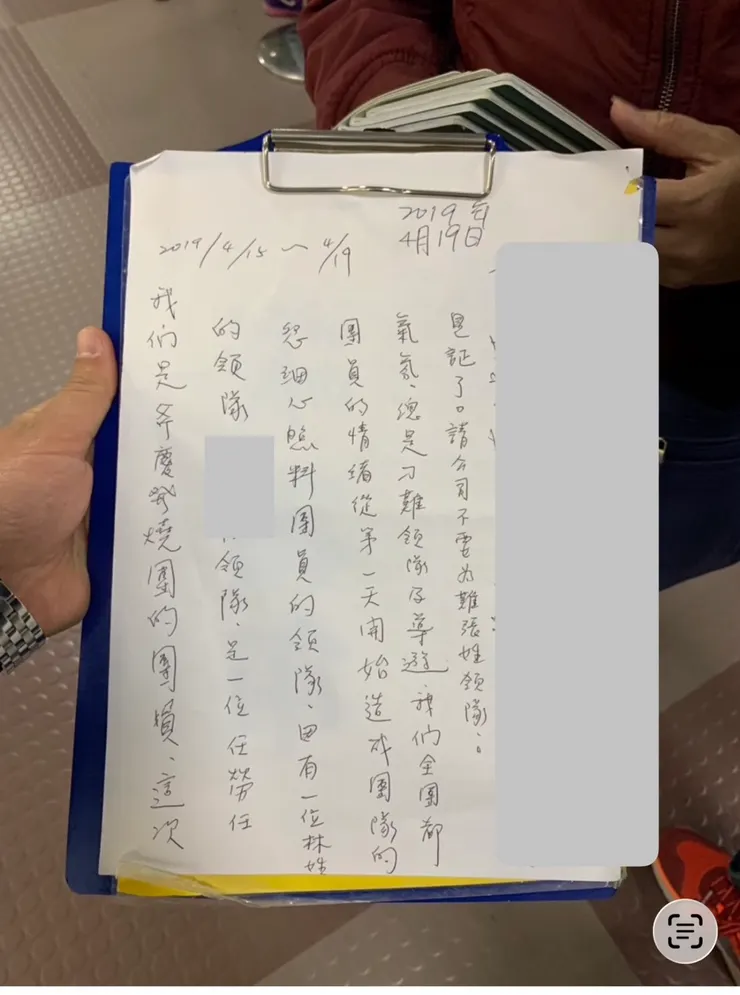 2019年
4月19日
2019/4/15～4/19
我們是慶發燒團的團員、這次
的領隊 領隊、是一位任勞任
怨細心照料團員的領隊、因有一位林姓
團員的情緒從第一天開始造成團隊的
氣氛、總是刁難領隊及導遊、我們全團都
見証了。請公司不要为難張姓領隊。